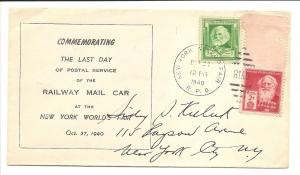 COMMEMORATING
THE LAST DAY
OF POSTAL SERVICE
OF THE
RAILWAY MAIL CAR
AT THE
NEW YORK WORLD'S FAIR
Oct. 27, 1940
NEW YORK FAIR
12 PM
1940
R.P.O.
Sidney S.
115 Payson Avenue
New York City N.Y.